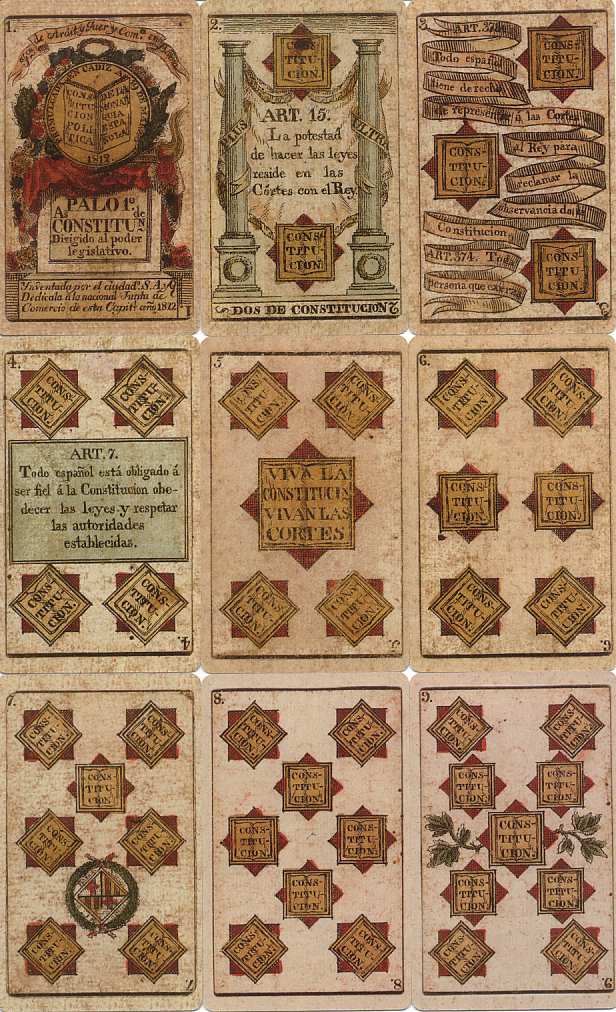 1.
CONS-
TITU-
CION
POLI-
TICA
DE LA
MONAR-
QUIA
ESPA-
ÑOLA
1812
PALO 1º
As de
CONSTITUN
Dirigido al poder
legislativo.
Ynventada por el ciudadº. S. A. y
Dedicala á la nacional Junta de
Comercio de esta Capitl. año, 1822
1
2.
CONS-
TITU-
CION.
PLUS
ULTRA
ART. 15.
La potestad
de hacer las leyes
reside en las
Córtes con el Rey.
CONS-
TITU-
CION.
DOS DE CONSTITUCION
2
3.
CONS-
TITU-
CION.
ART. 373.
Todo español
tiene derecho
de representar á las Cortes
al Rey para
reclamar la
observancia de la
Constitucion
ART. 374. Toda
persona que exerza
CONS-
TITU-
CION.
CONS-
TITU-
CION.
3
4.
CONS-
TITU-
CION.
CONS-
TITU-
CION.
ART. 7.
Todo español está obligado á
ser fiel á la Constitucion obe-
decer las leyes y respetar
las autoridades
establecidas.
CONS-
TITU-
CION.
CONS-
TITU-
CION.
4.
5.
CONS-
TITU-
CION.
CONS-
TITU-
CION.
VIVA LA
CONSTITUCIN
VIVAN LAS
CORTES
CONS-
TITU-
CION.
CONS-
TITU-
CION.
5.
6.
CONS-
TITU-
CION.
CONS-
TITU-
CION.
CONS-
TITU-
CION.
CONS-
TITU-
CION.
CONS-
TITU-
CION.
CONS-
TITU-
CION.
6.
7.
CONS-
TITU-
CION.
CONS-
TITU-
CION.
CONS-
TITU-
CION.
CONS-
TITU-
CION.
CONS-
TITU-
CION.
CONS-
TITU-
CION.
CONS-
TITU-
CION.
7.
8.
CONS-
TITU-
CION.
CONS-
TITU-
CION.
CONS-
TITU-
CION.
CONS-
TITU-
CION.
CONS-
TITU-
CION.
CONS-
TITU-
CION.
CONS-
TITU-
CION.
CONS-
TITU-
CION.
8.
9.
CONS-
TITU-
CION.
CONS-
TITU-
CION.
CONS-
TITU-
CION.
CONS-
TITU-
CION.
CONS-
TITU-
CION.
CONS-
TITU-
CION.
CONS-
TITU-
CION.
CONS-
TITU-
CION.
CONS-
TITU-
CION.
9.